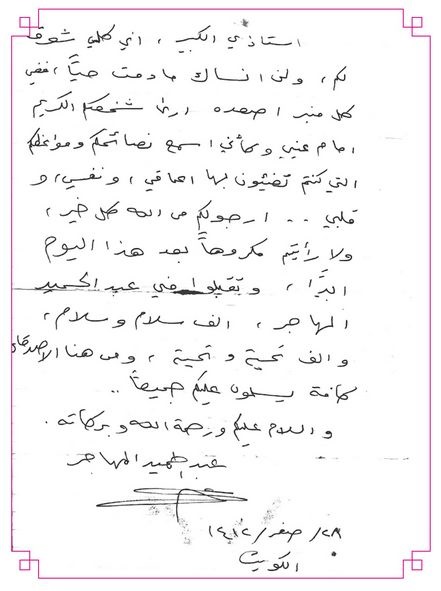 استاذي الكبير ، اني كلي شوق
لكم ، ولن انساك مادمت حيّاً ، ففي
كل منبر اصعده ارى شخصكم الكريم
امام عيني وكأني اسمع نصائحكم ومواعظكم
التي كنتم تضيئون بها اعماقي ، ونفسي ، و
قلبي .. ارجو لكم من الله كل خير ،
ولا رأيتم مكروهاً بعد هذا اليوم
ابداً ، وتقبلوا من عبد الحميد
المهاجر ، الف سلام وسلام ،
و الف تحية وتحية ، ومن هنا الاصدقاء
كافة يسلمون عليكم جميعاً ..
و السلام عليكم ورحمة الله وبركاته .
عبد الحميد المهاجر
٢٨/ صفر / ١٤١٢
الكويت